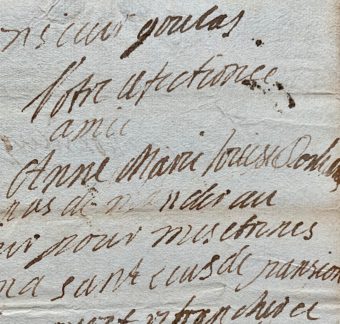 nsieur goulas
Votre afectionée
amie
Anne Marie Louise Dorlea
pas de mander au
ur pour mes etrines
ma sante eus de pansion